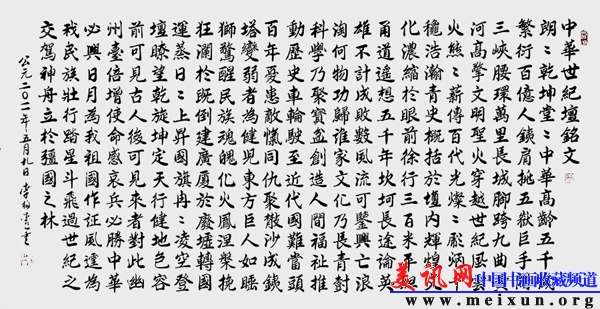 中華世紀壇銘文
朗〻乾坤堂〻中華高齡五千歲
繁衍百億人鎖肩挑五嶽巨手開
三峽腰環萬里長城腳跨九曲黃
河高擎文明聖火穿越世紀風雲
火熊〻薪傳百代光燦〻彪炳千
穐浩瀚青史概括於壇内輝煌文
化濃縮於眼前徐行三百米平坦
甬道遥想五千年坎坷長途論英
雄不計成敗數風流可鑒興亡浪
淘何物功歸誰家文化乃長青對
科學乃聚寶盆創造人間福祉推
動歷史車輪駛至近代國難當頭
百年憂患敵愾同仇聚散沙成鐵
塔變弱者為健兒東方巨人如睡
獅驚醒民族魂魄化火鳳涅槃挽
狂瀾於既倒建廣厦於廢墟轉國
運蒸日〻上昇國旗冉〻凌空登
壇瞭望乾旋坤定天行健地包容
前可見古人後可見來者對此幽
州臺倍增使命感哀兵必勝中華
必興日月為我祖國作証風違為
我民族壯行踏星斗飛過世紀之
交駕神舟立於疆國之林
公元二〇一一年五月九日
美讯网
中国书画收藏频道
www.meixun.org